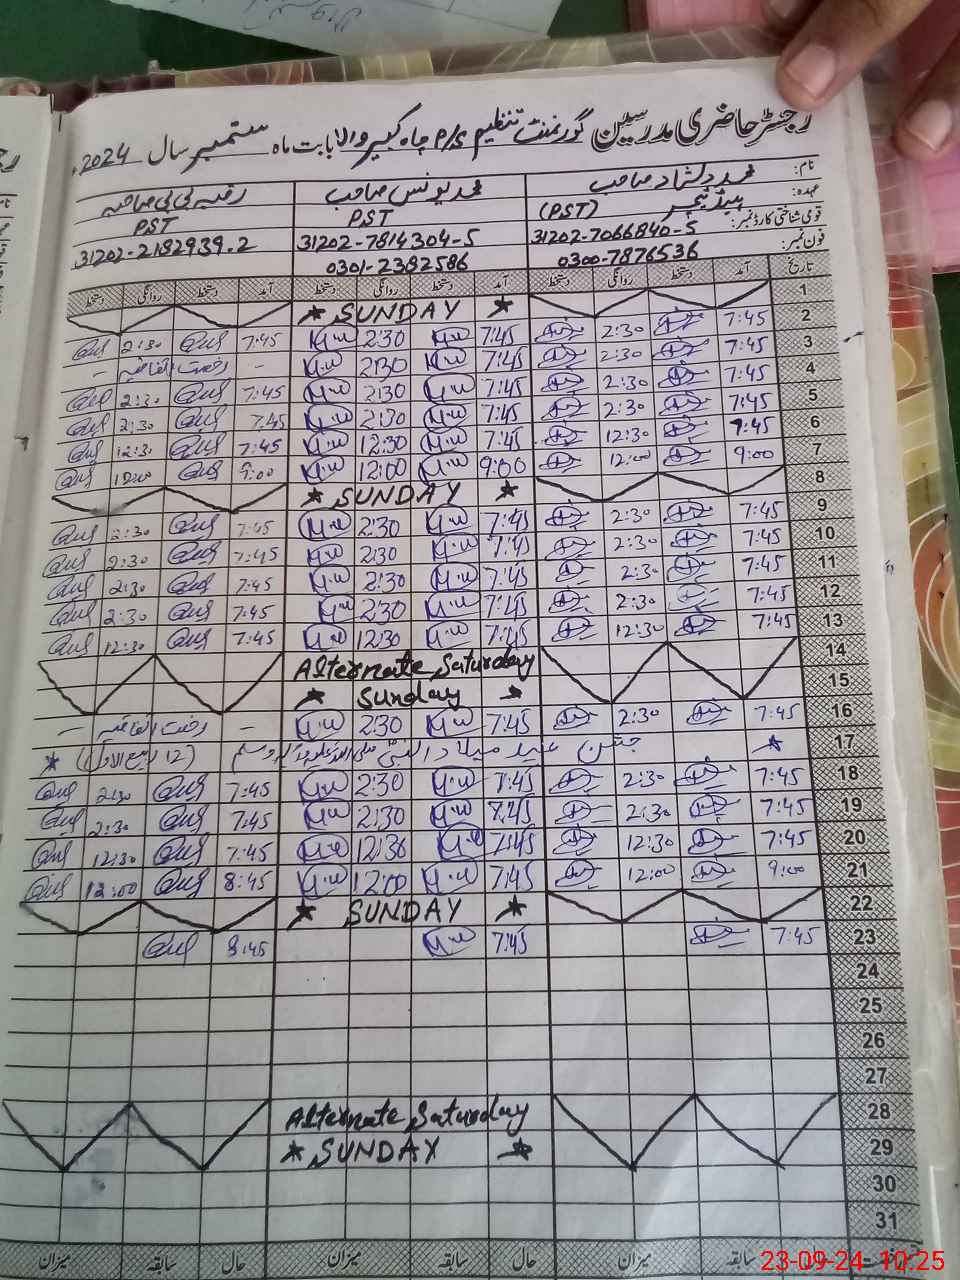 رجسٹر حاضری مدرسین گورنمنٹ تنظیم P/S چاہ کبیر والا بابت ماہ ستمبر سال 2024ء
نام: محمد دلشاد صاحب محمد یونس صاحب رقیہ بی بی صاحبہ
عہدہ: ہیڈ ٹیچر (PST) PST PST
قومی شناختی کارڈ نمبر: 31202-7066840-5 31202-7814304-5 31202-2182939-2
فون نمبر: 0300-7876536 0301-2382586
تاریخ آمد دستخط روانگی دستخط آمد دستخط روانگی دستخط آمد دستخط روانگی دستخط
1 ★ SUNDAY ★
2 7:45 2:30 7:45 2:30 7:45 2:30
3 7:45 2:30 7:45 2:30 - رخصت اتفاقیہ -
4 7:45 2:30 7:45 2:30 7:45 2:30
5 7:45 2:30 7:45 2:30 7:45 2:30
6 7:45 12:30 7:45 12:30 7:45 12:30
7 9:00 12:00 9:00 12:00 9:00 12:00
8 ★ SUNDAY ★
9 7:45 2:30 7:45 2:30 7:45 2:30
10 7:45 2:30 7:45 2:30 7:45 2:30
11 7:45 2:30 7:45 2:30 7:45 2:30
12 7:45 2:30 7:45 2:30 7:45 2:30
13 7:45 12:30 7:45 12:30 7:45 12:30
14 Alternate Saturday
15 ★ Sunday ★
16 7:45 2:30 7:45 2:30 - رخصت اتفاقیہ -
17 ★ جشن عید میلاد النبی صلی اللہ علیہ وآلہ وسلم (12 ربیع الاول) ★
18 7:45 2:30 7:45 2:30 7:45 2:30
19 7:45 2:30 7:45 2:30 7:45 2:30
20 7:45 12:30 7:45 12:30 7:45 12:30
21 9:00 12:00 7:45 12:00 8:45 12:00
22 ★ SUNDAY ★
23 7:45 7:45 8:45
24
25
26
27
28 Alternate Saturday
29 ★ SUNDAY ★
30
31
سابقہ میزان حال سابقہ میزان حال سابقہ میزان
23-09-24 10:25